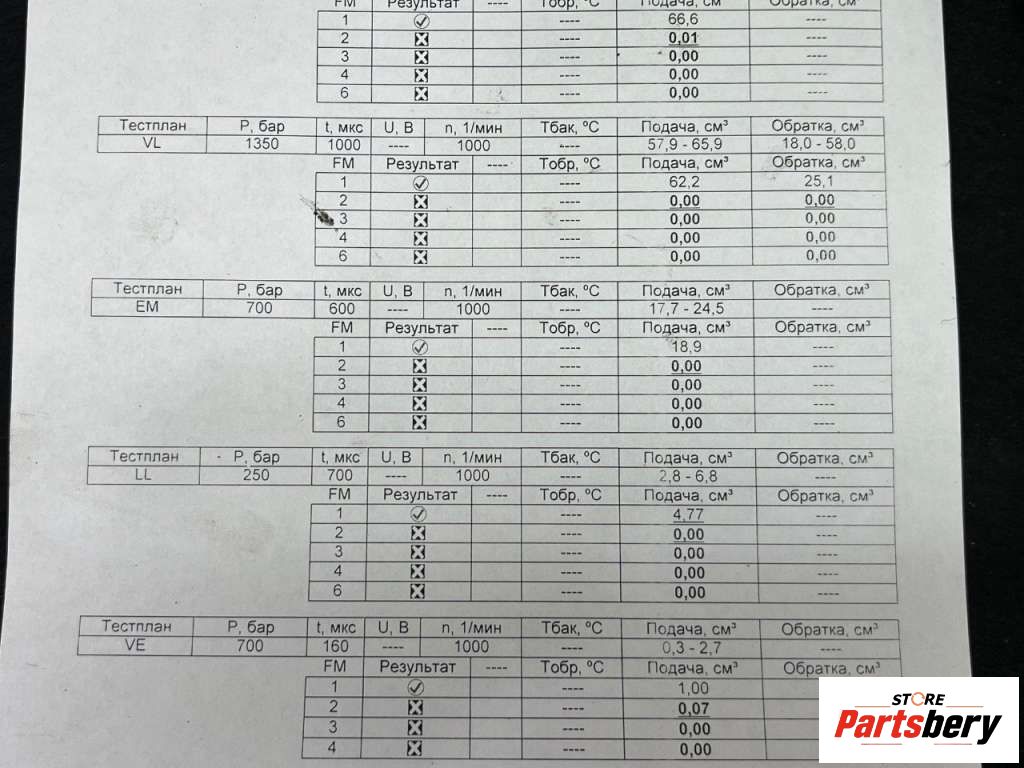 FM Результат ---- Тобр, ºС Подача, см³ Обратка, см³
1 ---- 66,6 ----
2 ---- 0,01 ----
3 ---- 0,00 ----
4 ---- 0,00 ----
6 ---- 0,00 ----
Тестплан P, бар t, мкс U, В n, 1/мин Тбак, ºС Подача, см³ Обратка, см³
VL 1350 1000 ---- 1000 ---- 57,9 - 65,9 18,0 - 58,0
FM Результат ---- Тобр, ºС Подача, см³ Обратка, см³
1 ---- 62,2 25,1
2 ---- 0,00 0,00
3 ---- 0,00 0,00
4 ---- 0,00 0,00
6 ---- 0,00 0,00
Тестплан P, бар t, мкс U, В n, 1/мин Тбак, ºС Подача, см³ Обратка, см³
EM 700 600 ---- 1000 ---- 17,7 - 24,5 ----
FM Результат ---- Тобр, ºС Подача, см³ Обратка, см³
1 ---- 18,9 ----
2 ---- 0,00 ----
3 ---- 0,00 ----
4 ---- 0,00 ----
6 ---- 0,00 ----
Тестплан P, бар t, мкс U, В n, 1/мин Тбак, ºС Подача, см³ Обратка, см³
LL 250 700 ---- 1000 ---- 2,8 - 6,8 ----
FM Результат ---- Тобр, ºС Подача, см³ Обратка, см³
1 ---- 4,77 ----
2 ---- 0,00 ----
3 ---- 0,00 ----
4 ---- 0,00 ----
6 ---- 0,00 ----
Тестплан P, бар t, мкс U, В n, 1/мин Тбак, ºС Подача, см³ Обратка, см³
VE 700 160 ---- 1000 ---- 0,3 - 2,7 ----
FM Результат ---- Тобр, ºС Подача, см³ Обратка, см³
1 ---- 1,00
2 ---- 0,07
3 ---- 0,00
4 ---- 0,00
STORE
Partsbery